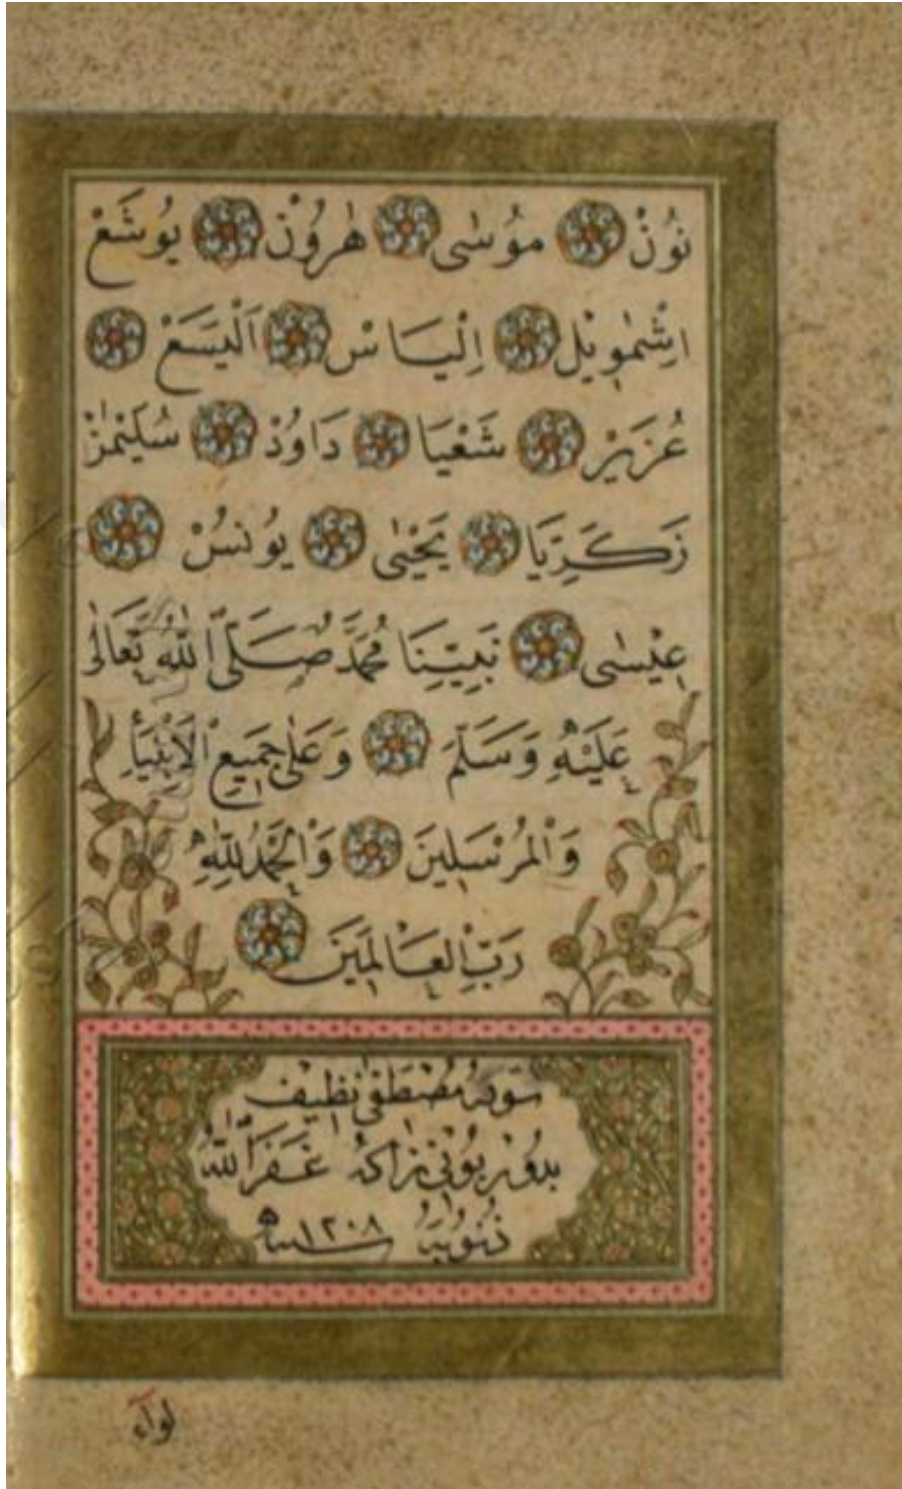 نُونْ مُوسٰى هٰرُونْ يُوشَعْ
اِشْمٰوِيْل اِلْيَاسْ اَلْيَسَعْ
عُزَيْر شَعْيَا دَاوُدْ سُلَيْمٰنْ
زَكَرِيَّا يَحْيٰى يُونُسْ
عِيْسٰى نَبِيِّنَا مُحَمَّدْ صَلَّى اللّٰهُ تَعَالٰى
عَلَيْهِ وَسَلَّمَ وَعَلٰى جَمِيعِ الْاَنْبِيَاءِ
وَالْمُرْسَلِينَ وَالْحَمْدُ لِلّٰهِ
رَبِّ الْعَالَمِينَ
سَوَّدَهُ مُصْطَفٰى نَظِيف
غَفَرَ اللّٰهُ
ذُنُوبَهُ سنه ١٢٠٨
لوآء